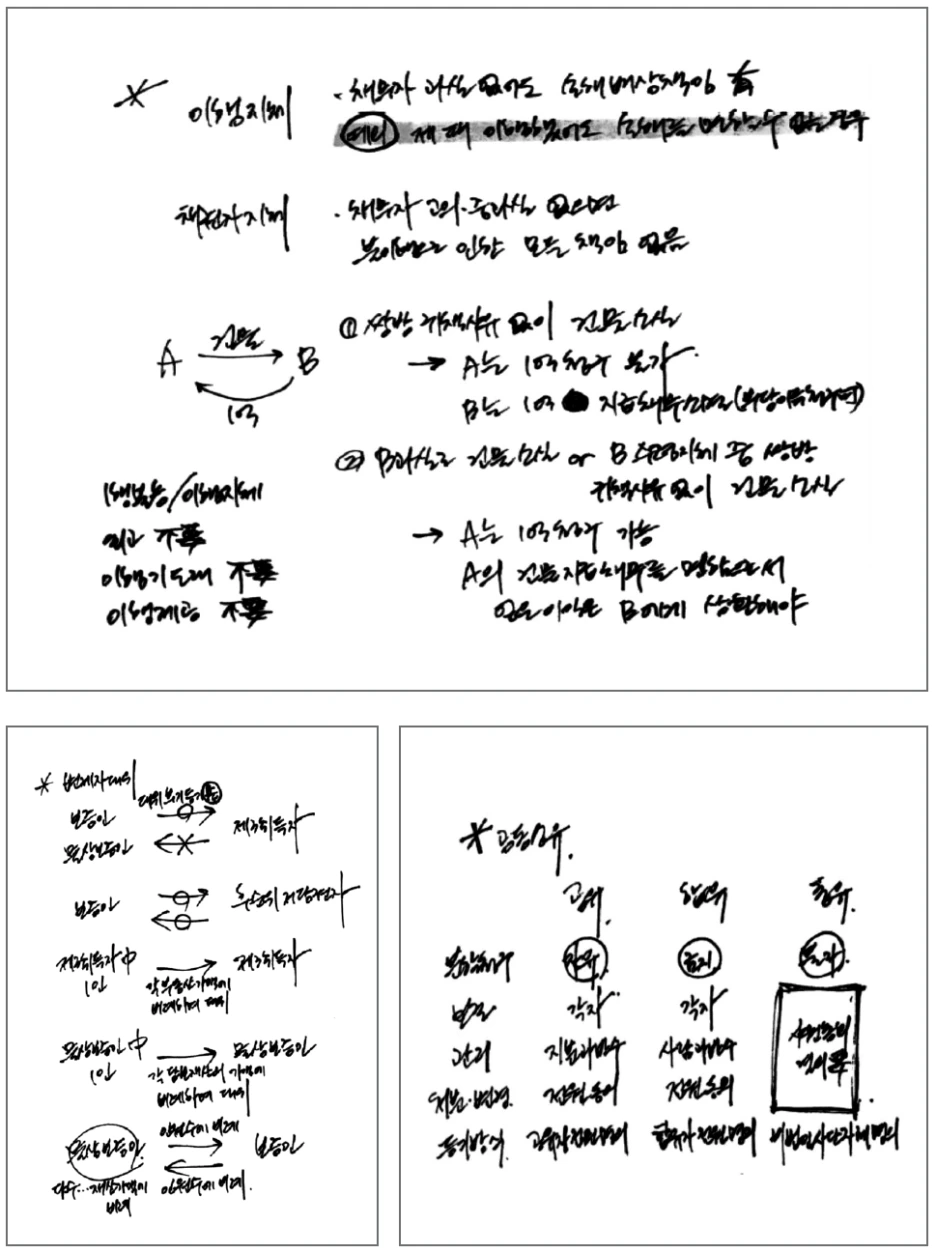 * 이행지체
· 채무자 과실 없어도 손해배상책임 有
예외 제 때 이행했어도 손해를 면할 수 없는 경우
채권자지체
· 채무자 고의·중과실 없으면
불이행으로 인한 모든 책임 없음
A 건물 → B
1억
① 쌍방 귀책사유 없이 건물소실
→ A는 1억청구 불가
B는 1억 지급채무소멸 (부당이득청구역)
② B과실로 건물소실 or B 수령지체 중 쌍방
귀책사유 없이 건물소실
→ A는 1억청구 가능
A의 건물지급채무를 면함으로써
얻은 이익은 B에게 상환해야
이행불능/이행지체
최고 不要
이행기도래 不要
이행제공 不要
* 변제자대위
대위 부기등기
보증인
물상보증인
제3취득자
보증인
후순위 저당권자
제3취득자 中
1인
제3취득자
각 부동산가액에
비례하여 대위
물상보증인 中
1인
물상보증인
각 담보재산의 가액에
비례하여 대위
인원수에 비례
물상보증인
보증인
다수… 재산가액에
비례
인원수에 비례.
* 공동소유.
공유 합유 총유.
분할청구 자유 금지 불가.
보존 각자 각자
관리 지분과반수 사람과반수
사원총회
결의 要
처분·변경. 전원동의 전원동의
등기방식 공유자전원명의 합유자 전원명의 비법인사단 자체 명의